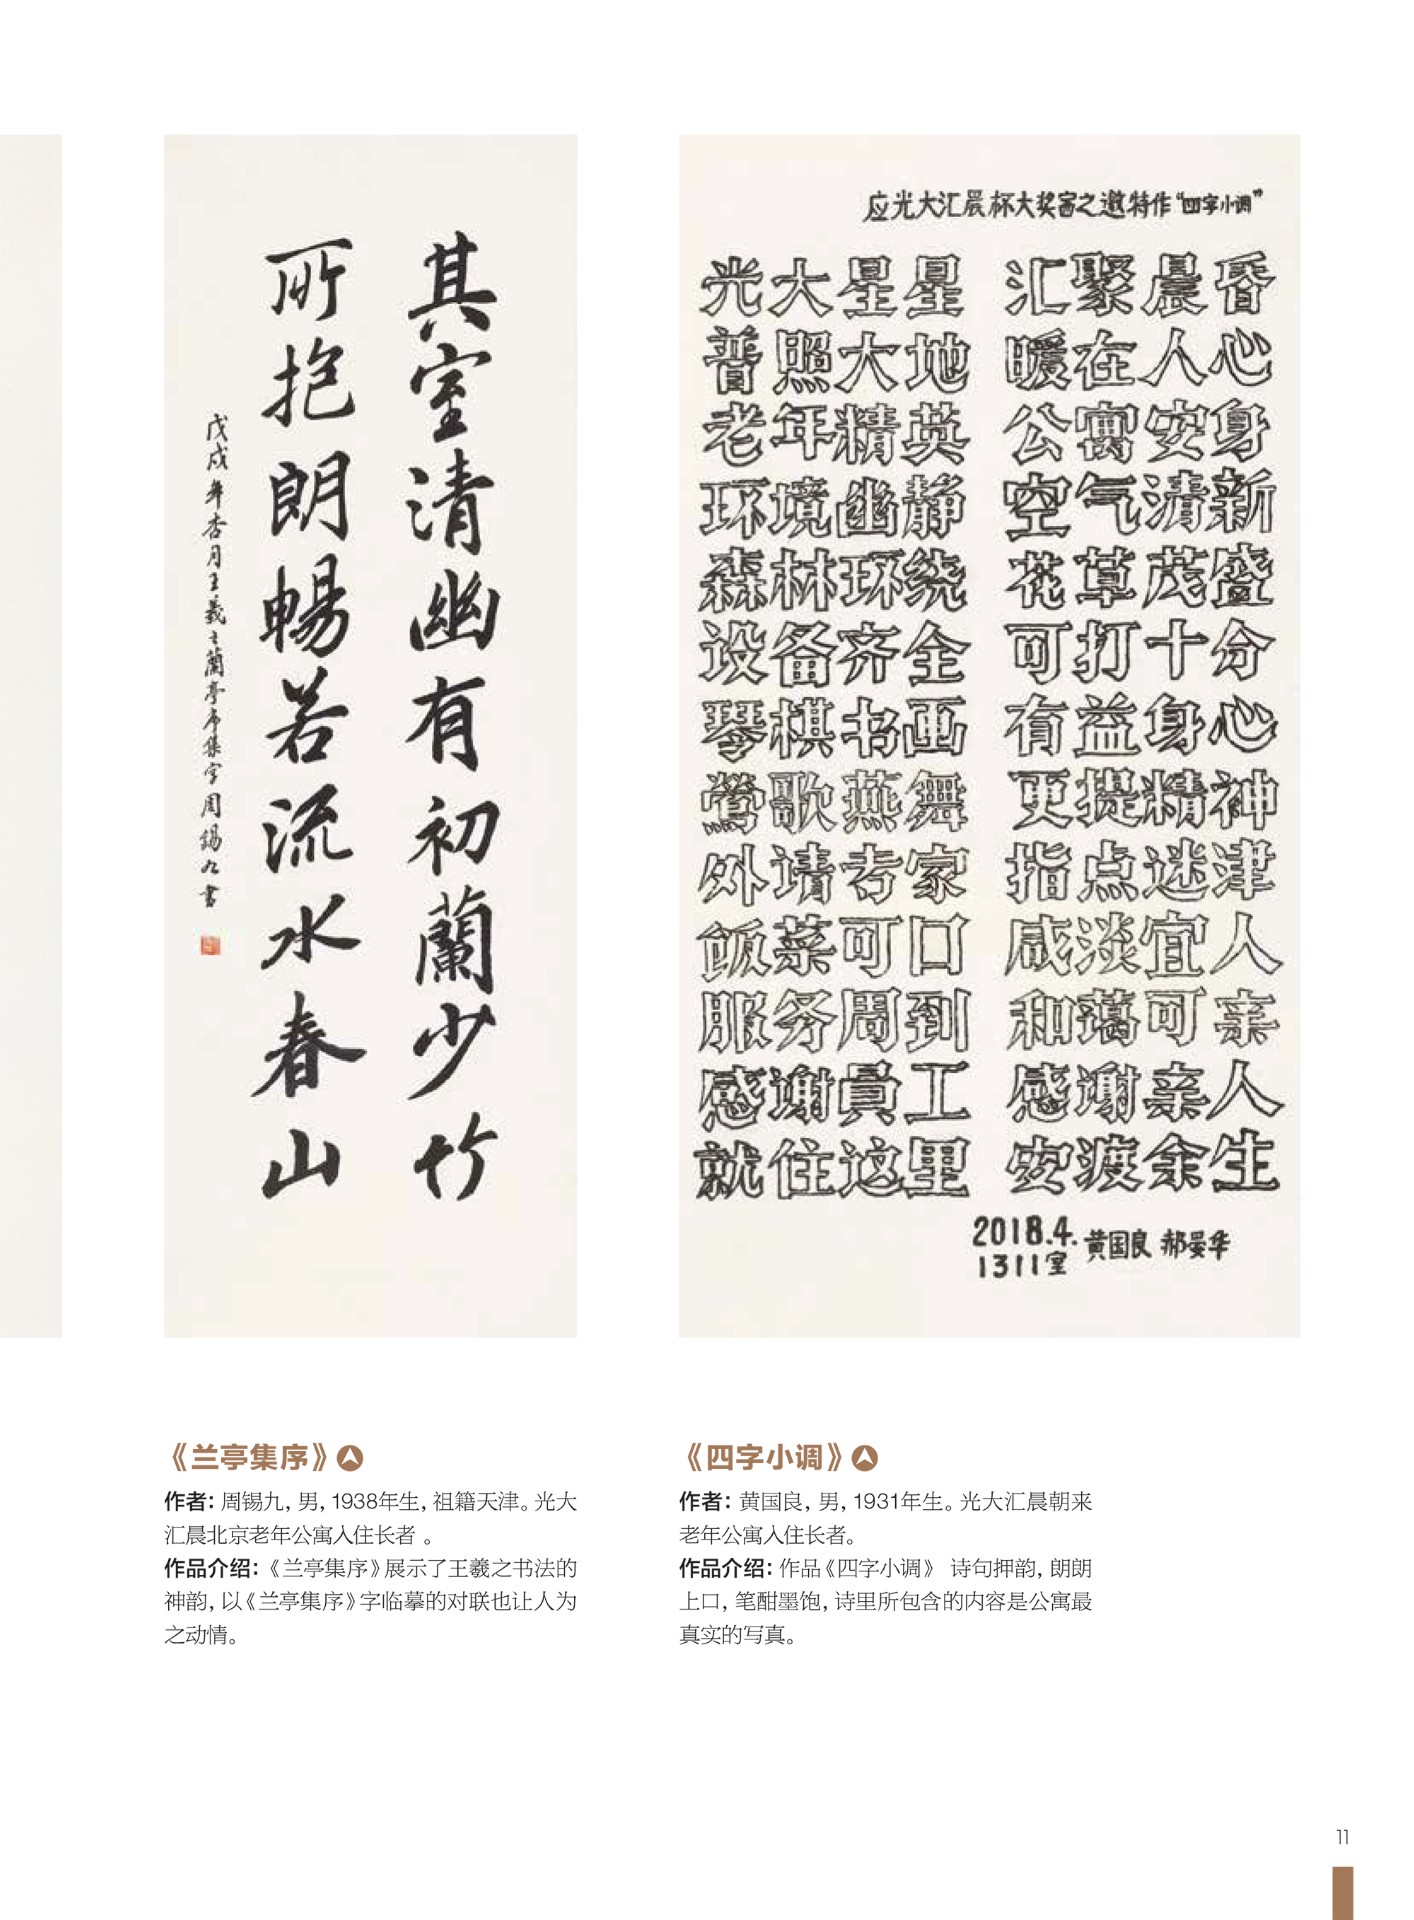 其室清幽有初蘭少竹
所抱朗暢若流水春山
戊戌年杏月王羲之蘭亭序集字周錫九書
应光大汇晨杯大奖赛之邀特作“四字小调”
光大星星 汇聚晨昏
普照大地 暖在人心
老年精英 公寓安身
环境幽静 空气清新
森林环绕 花草茂盛
设备齐全 可打十分
琴棋书画 有益身心
鶯歌燕舞 更提精神
外请专家 指点迷津
饭菜可口 咸淡宜人
服务周到 和蔼可亲
感谢員工 感谢亲人
就住这里 安渡余生
2018.4. 黄国良 郝晏华
1311室
《兰亭集序》
作者：周锡九，男，1938年生，祖籍天津。光大
汇晨北京老年公寓入住长者 。
作品介绍：《兰亭集序》展示了王羲之书法的
神韵，以《兰亭集序》字临摹的对联也让人为
之动情。
《四字小调》
作者：黄国良，男，1931年生。光大汇晨朝来
老年公寓入住长者。
作品介绍：作品《四字小调》 诗句押韵，朗朗
上口，笔酣墨饱，诗里所包含的内容是公寓最
真实的写真。
11